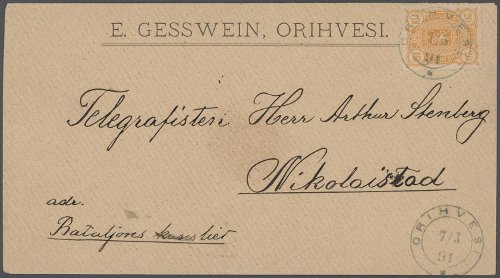 E. GESSWEIN, ORIHVESI.
7/3
91
Telegrafisten Herr Arthur Stenberg
Nikolaistad
adr.
Bataljons
ORIHVESI
7/3
91